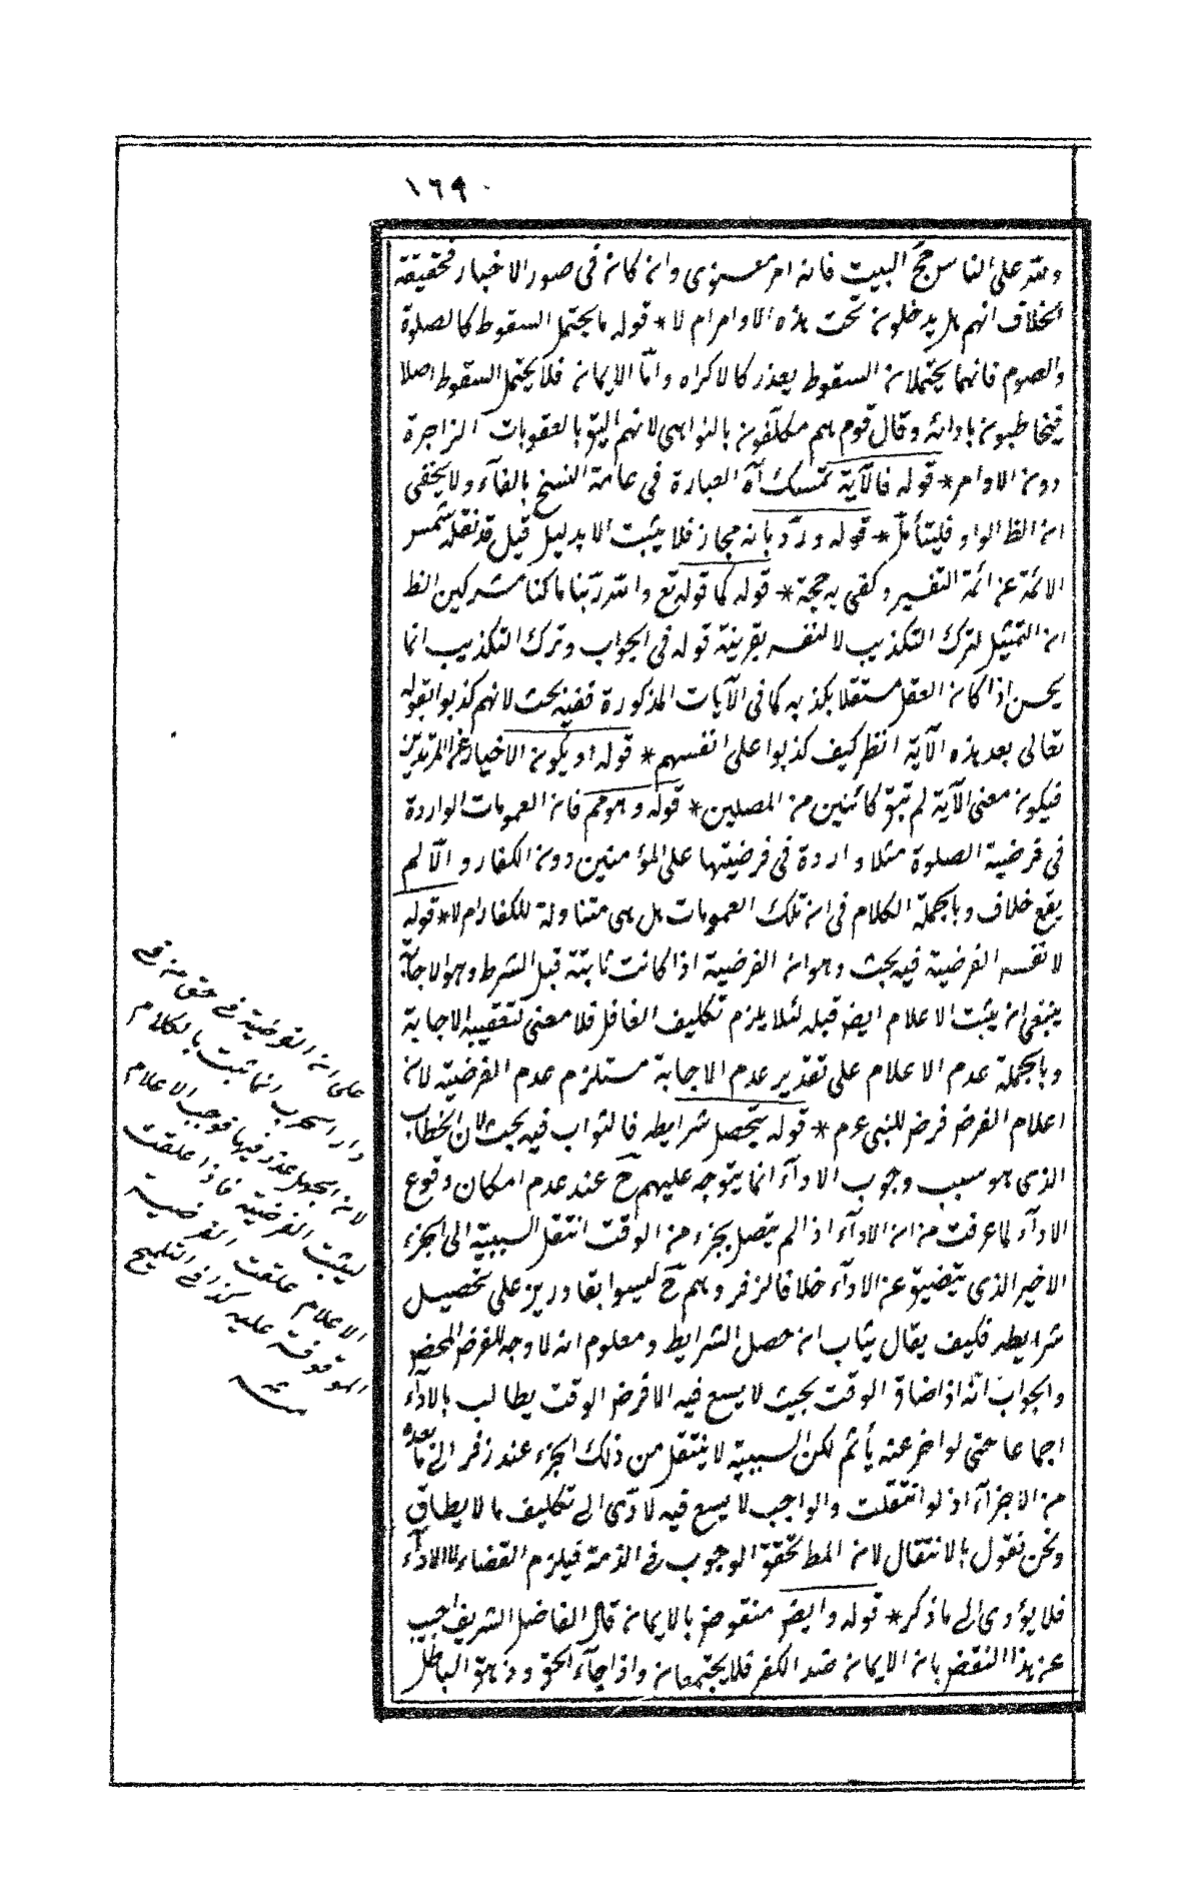 ١٦٩
ولله على الناس حج البيت فانه امر معنوى وان كان فى صور الاخبار فحقيقة
الخلاف انهم هل يدخلون تحت هذه الاوامر ام لا * قوله ما يحتمل السقوط كالصلوة
والصوم فانهما يحتملان السقوط بعذر كالاكراه واما الايمان فلا يحتمل السقوط اصلا
فيخاطبون بادائه وقال قوم هم مكلفون بالنواهى لانهم اليق بالعقوبات الزاجرة
دون الاوامر * قوله فالآية تمسك آه العبارة فى عامة النسخ بالفآء ولا يخفى
ان الظ الواو فليتأمل * قوله وردّ بانه مجاز فلا يثبت الا بدليل قيل قد نقله شمس
الائمة عن ائمة التفسير وكفى به حجة * قوله كما قوله تع والله ربنا ما كنا مشركين الظ
ان التمثيل لترك التكذيب لا لنفسه بقرينة قوله فى الجواب وترك التكذيب انما
يحسن اذا كان العقل مستقلا بكذبه كما فى الآيات المذكورة ففيه بحث لانهم كذبوا بقوله
تعالى بعد هذه الآية انظر كيف كذبوا على انفسهم * قوله او يكون الاخبار عن المرتدين
فيكون معنى الآية لم نبق كائنين من المصلين * قوله وهو مم فان العمومات الواردة
فى فرضية الصلوة مثلا واردة فى فرضيتها على المؤمنين دون الكفار والّا لم
يقع خلاف وبالجملة الكلام فى ان تلك العمومات هل هى متناولة للكفار ام لا * قوله
لا نفس الفرضية فيه بحث وهو ان الفرضية اذا كانت ثابتة قبل الشرط وهو الاجابة
ينبغى ان يثبت الاعلام ايض قبله لئلا يلزم تكليف الغافل فلا معنى لتعقيبه الاجابة
وبالجملة عدم الاعلام على تقدير عدم الاجابة مستلزم عدم الفرضية لان
اعلام الفرض فرض للنبى عم * قوله بتحصل شرايطه فالثواب فيه بحث لان الخطاب
الذى هو سبب وجوب الادآء انما يتوجه عليهم ح عند عدم امكان وقوع
الادآء لما عرفت من ان الادآء اذا لم يتصل بجزء من الوقت انتقل السببية الى الجزء
الاخير الذى يتضيق عن الادآء خلافا لزفر وهم ح ليسوا بقادرين على تحصيل
شرايطه فكيف يقال يثاب ان حصل الشرايط ومعلوم انه لا وجه للفرض المحض
والجواب انّه اذا ضاق الوقت بحيث لا يسع فيه الا فرض الوقت يطالب بالادآء
اجماعا حتى لو اخر عنه يأثم لكن السببية لا ينتقل من ذلك الجزء عند زفر الى ما بعده
من الاجزآء اذ لو انتقلت والواجب لا يسع فيه لادّى الى تكليف ما لا يطاق
ونحن نقول بالانتقال لان المط تحقق الوجوب فى الذمة فيلزم القضاء لا الادآء
فلا يؤدى الى ما ذكر * قوله وايض منقوض بالايمان قال الفاضل الشريف اجيب
عن هذا النقض بان الايمان ضد الكفر فلا يجتمعان واذا جآء الحق وزهق الباطل
على ان الفرضية فى حق من فى
دار الحرب انما ثبت بالكلام
لان الجهل عذر فيها فوجب الاعلام
ليثبت الفرضية فاذا علقت
الاعلام علقت الفرضية
الموقوفة عليه كذا فى التلويح
منه